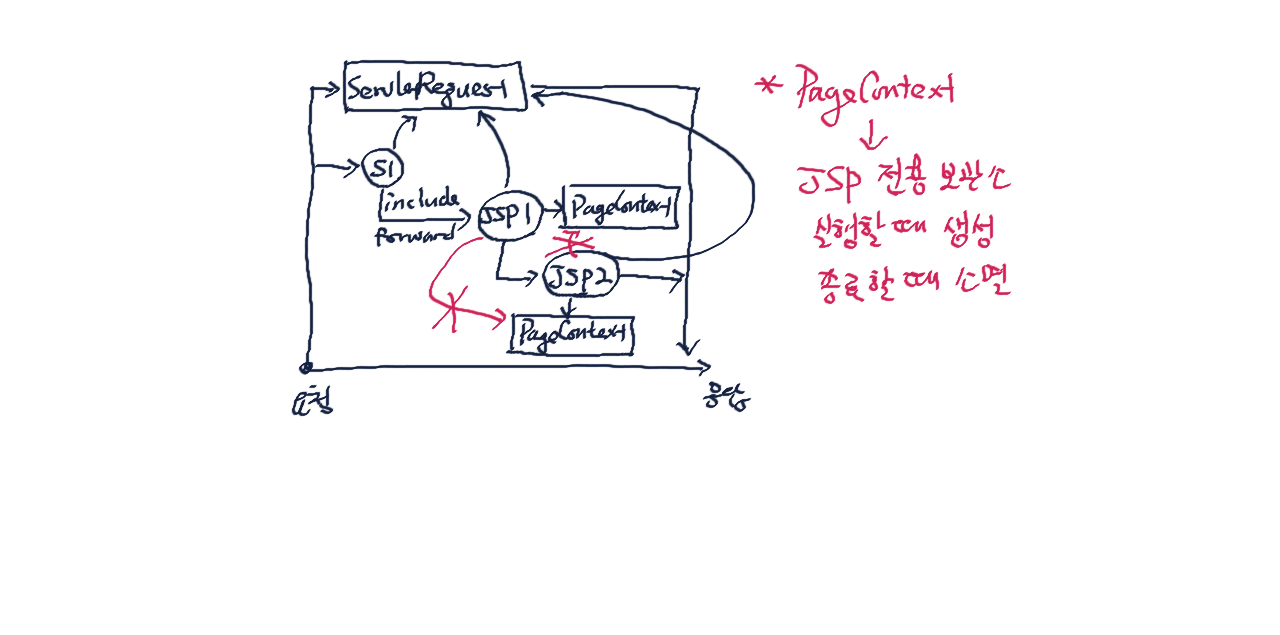 ServleRequest
S1
include
forward
JSP1
PageContext
JSP2
PageContext
요청
응답
* PageContext
JSP 전용 보관소
실행할 때 생성
종료할 때 소멸